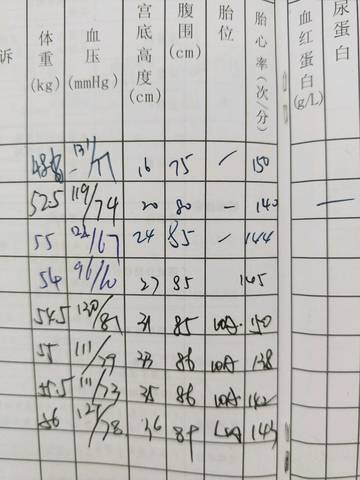 诉 体重(kg) 血压(mmHg) 宫底高度(cm) 腹围(cm) 胎位 胎心率(次/分) 血红蛋白(g/L) 尿蛋白
131/77 16 75 — 150
52.5 119/74 20 80 — 140 —
55 122/67 24 85 — 144
54 96/60 27 85 145
54.5 130/87 31 85 LOA 150
55 111/79 33 86 LOA 138
55.5 111/73 35 86 LOA 142
56 36 89 LOA 143